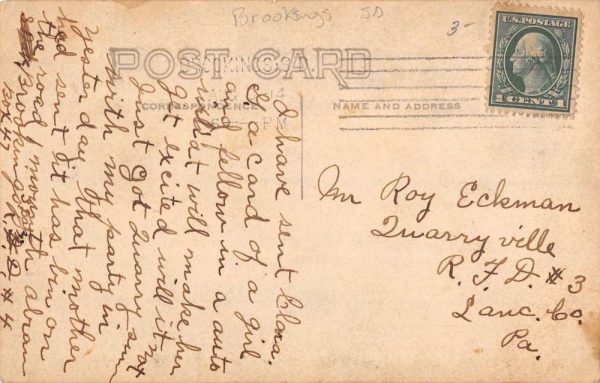 Brookings SD
3-
U.S. POSTAGE
1 CENT 1
POST CARD
14
CORRESPONDENCE
NAME AND ADDRESS
I have sent Clara.
G a card of a girl
and follow in a auto
what will make her
Get excited will it not
Just got Quarry
with my party in
yesterday, that mother
had sent it has bin on
the road most
Brookings S D # 4
Box 47
Mr Roy Eckman
Quarryville
R. F. D. # 3
Lanc. Co.
Pa.